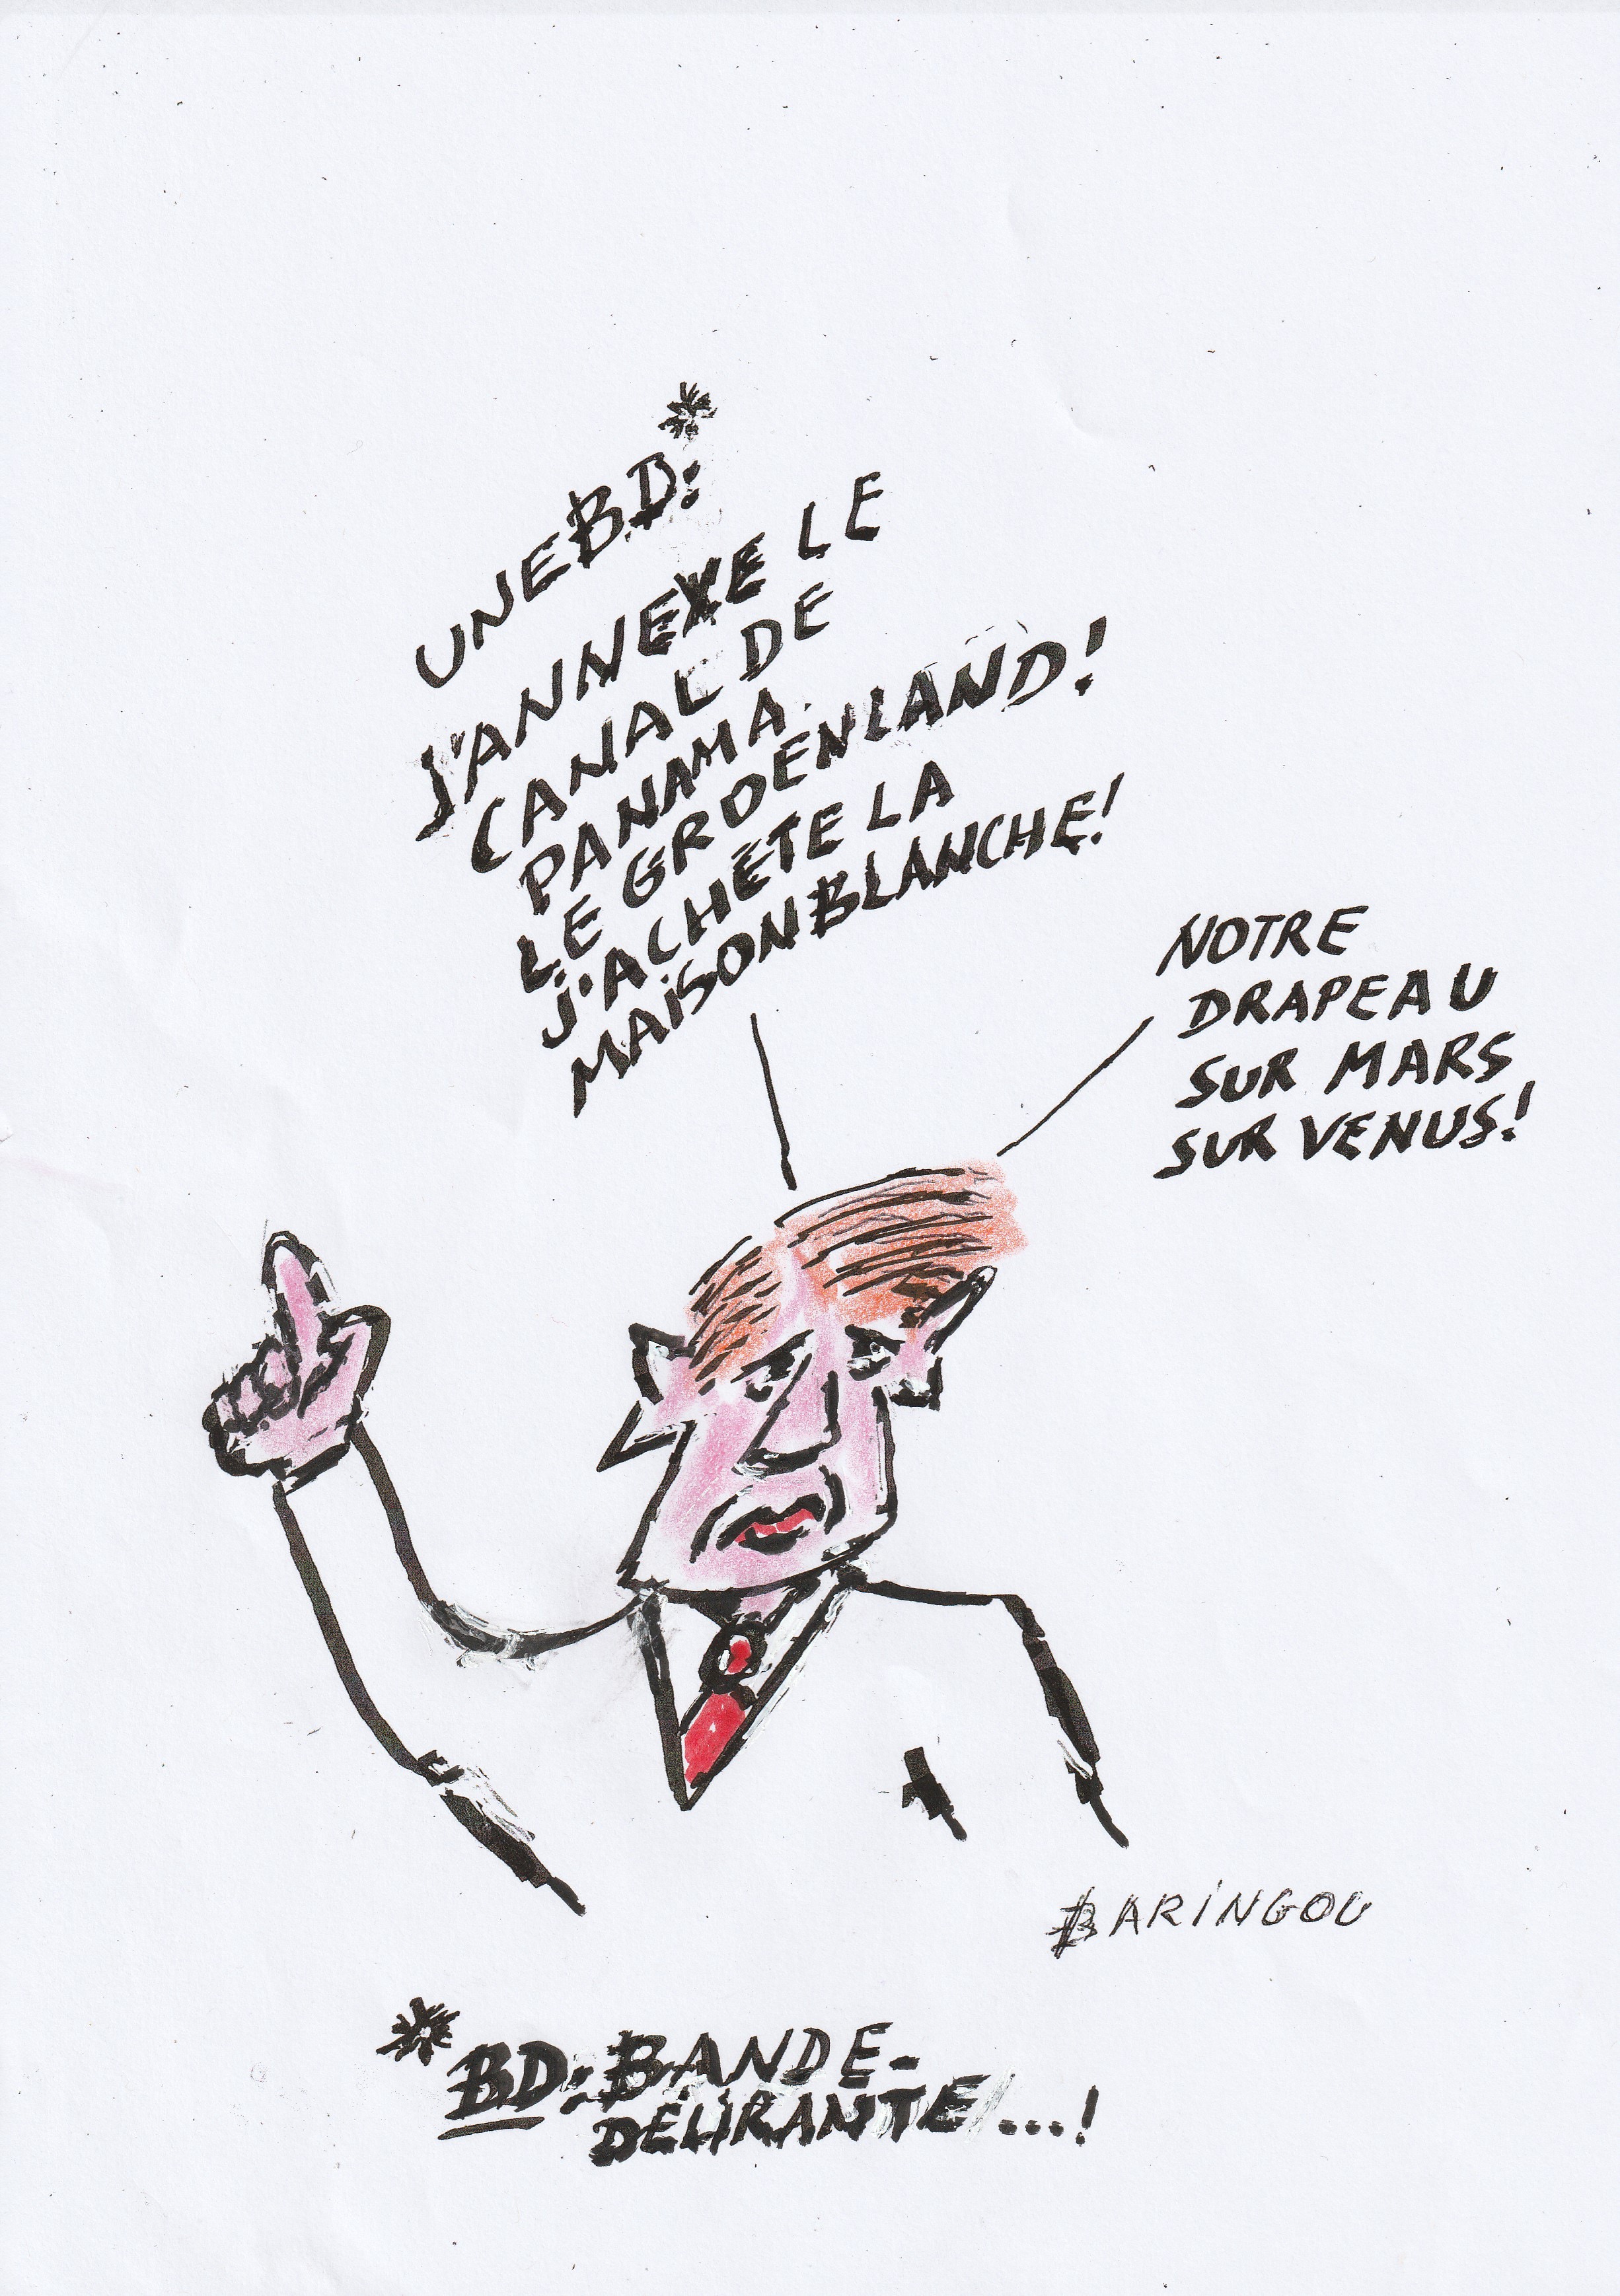 *
UNE BD:
J'ANNEXE LE
CANAL DE
PANAMA.
LE GROENLAND!
J'ACHÈTE LA
MAISON BLANCHE!
NOTRE
DRAPEAU
SUR MARS
SUR VENUS!
BARINGOU
* BD: BANDE-
DÉLIRANTE...!